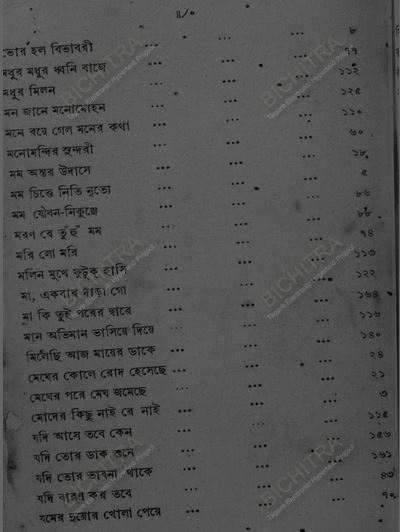 ৷৷/০
ভোর হল বিভাবরী ... ... ৮
মধুর মধুর ধ্বনি বাজে ... ... ৭৭
মধুর মিলন ... ... ১১২
মন জানে মনোমোহন ... ... ১২৫
মনে রয়ে গেল মনের কথা ... ... ১১০
মনোমন্দির সুন্দরী ... ... ৬০
মম অন্তর উদাসে ... ... ১৮
মম চিত্তে নিতি নৃত্যে ... ... ৫
মম যৌবন-নিকুঞ্জে ... ... ৮৬
মরণ রে তুঁহুঁ মম ... ... ৮৮
মরি লো মরি ... ... ৭৪
মলিন মুখে ফুটুক হাসি ... ... ১১৩
মা, একবার দাঁড়া গো ... ... ১২২
মা কি তুই পরের দ্বারে ... ... ১৬৪
মান অভিমান ভাসিয়ে দিয়ে ... ... ১১৬
মিলেছি আজ মায়ের ডাকে ... ... ১৪০
মেঘের কোলে রোদ হেসেছে ... ... ২৪
মেঘের পরে মেঘ জমেছে ... ... ২১
মোদের কিছু নাই রে নাই ... ... ৩
যদি আসে তবে কেন ... ... ১১৫
যদি তোর ডাক শুনে ... ... ১৫৬
যদি তোর ভাবনা থাকে ... ... ১৬১
যদি বারণ কর তবে ... ... ৪৩
যমের দুয়োর খোলা পেয়ে ... ... ৭০